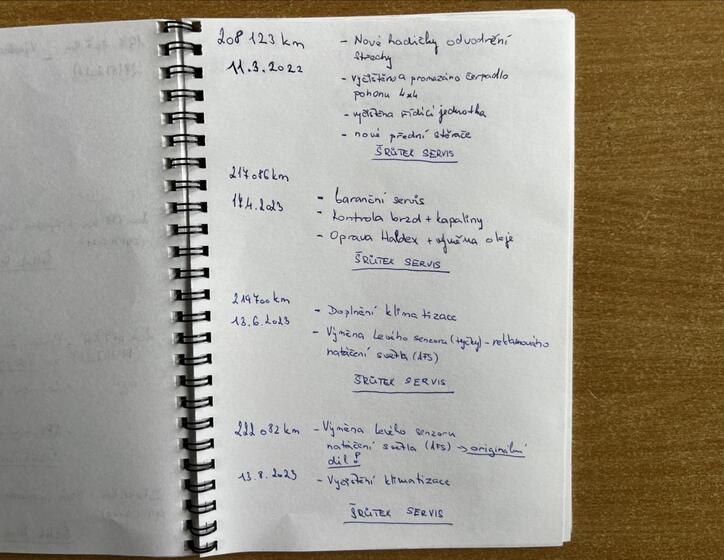 208 123 km
- Nové hadičky odvodnění
střechy
11.3.2022
- vyčištěno a promazáno čerpadlo
pohonu 4x4
- vyčištěna řídící jednotka
- nové přední stěrače
ŠRŮTEK SERVIS
217 086 km
17.4.2023
- Garanční servis
- kontrola brzd + kapaliny
- Oprava Haldex + výměna oleje
ŠRŮTEK SERVIS
219 700 km
- Doplnění klimatizace
13.6.2023
- Výměna levého senzoru (tyčky) - reklamováno
natáčení světla (AFS)
ŠRŮTEK SERVIS
222 082 km
- Výměna levého senzoru
natáčení světla (AFS) → originální
díl!
13.8.2023
- Vyčištění klimatizace
ŠRŮTEK SERVIS